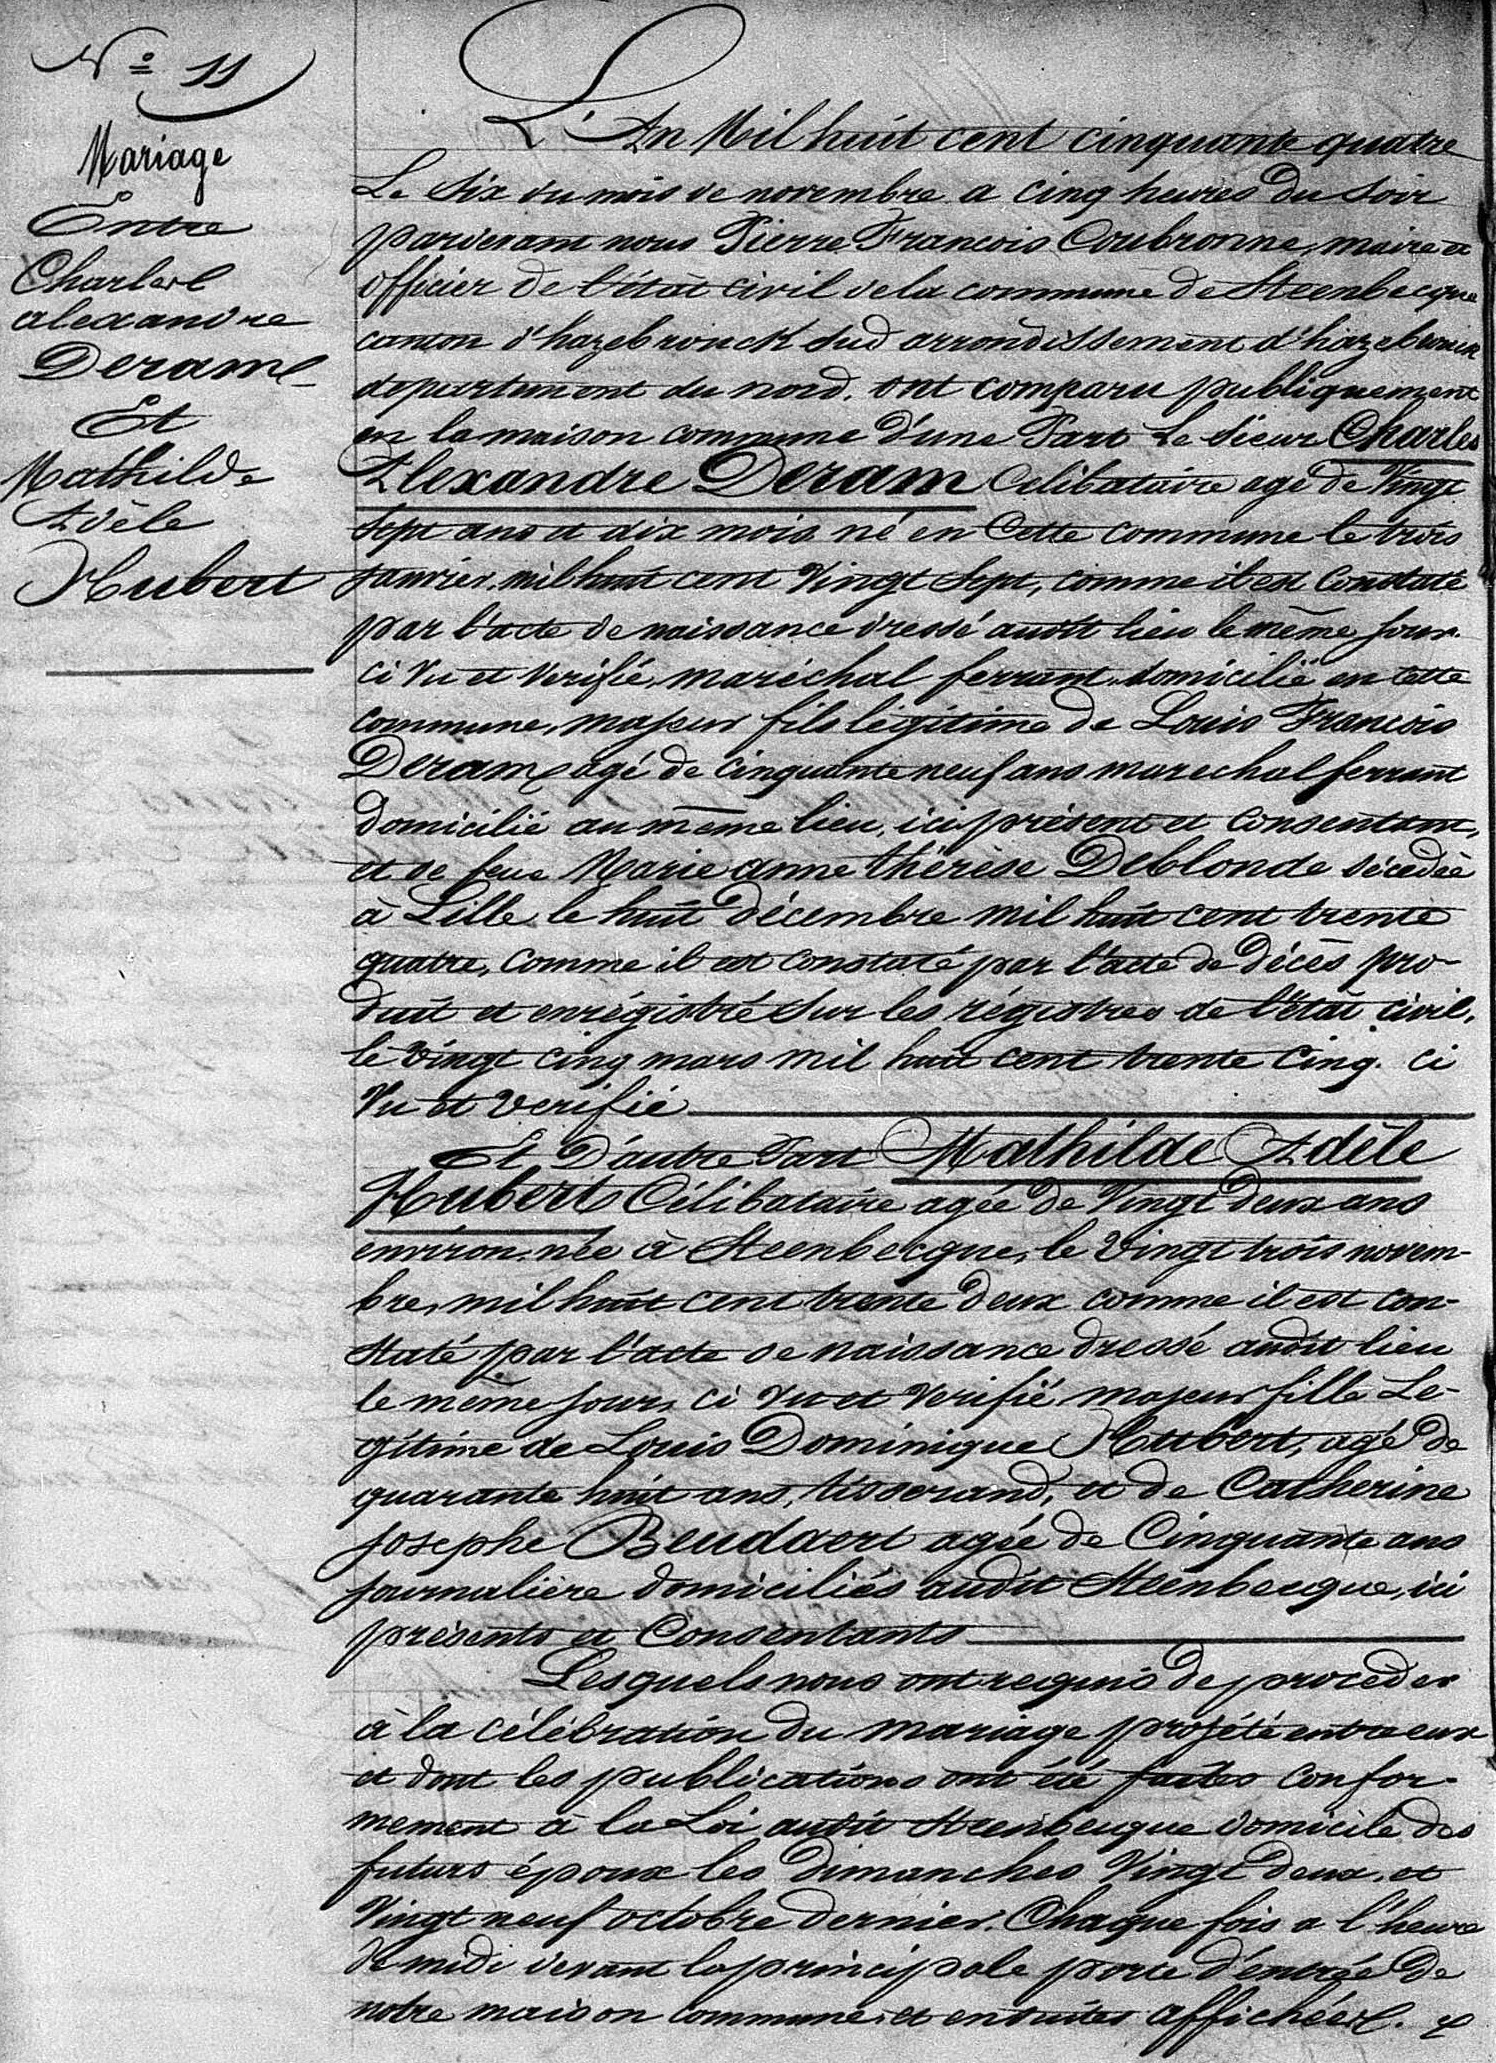 N° 11
Mariage
Entre
Charles
alexandre
Deram
Et
Mathilde
Adèle
Hubert
L'An Mil huit cent cinquante quatre
Le six du mois de novembre a cinq heures du soir
pardevant nous Pierre Francois Coubronne, maire et
officier de l'état civil de la commune de Steenbecque
canton d'hazebrouck sud arrondissement d'hazebrouck
departement du nord. ont comparu publiquement
en la maison commune d'une Part Le sieur Charles
Alexandre Deram Celibataire agé de Vingt
sept ans et dix mois né en Cette commune le trois
janvier mil huit cent Vingt Sept, comme il est Constaté
par l'acte de naissance dressé audit lieu le même jour
ci Vu et Verifié, maréchal ferrant domicilié en Cette
commune, majeur fils légitime de Louis Francois
Deram agé de cinquante neuf ans marechal ferrant
domicilié au même lieu, ici présent et Consentant,
et de feue Marie anne thérèse Deblonde décédée
à Lille le huit décembre mil huit cent trente
quatre, comme il est constaté par l'acte de décès pro-
duit et enrégistré sur les régistres de l'état civil,
le vingt cinq mars mil huit cent trente Cinq. ci
Vu et verifié
Et D'autre Part Mathilde Adèle
Hubert Célibataire agée de Vingt deux ans
environ née à Steenbecque, le Vingt trois novem-
bre, mil huit cent trente deux comme il est con-
staté par l'acte de naissance dressé audit lieu
le même jour, ci Vu et Verifié majeur fille Lé-
gitime de Louis Dominique Hubert, agé de
quarante huit ans, tisserand, et de Catherine
Josephe Beudaert agée de Cinquante ans
journalière domiciliés audit Steenbecque, ici
présents et Consentants
Lesquels nous ont requis de proceder
à la célébration du mariage projété entre eux
et dont les publications ont été faites Confor-
mement à la Loi audit Steenbecque domicile des
futurs époux les dimanches Vingt deux et
Vingt neuf octobre dernier. Chaque fois a l'heure
de midi devant la principale porte d'entrée de
notre maison commune et ensuites affichées.